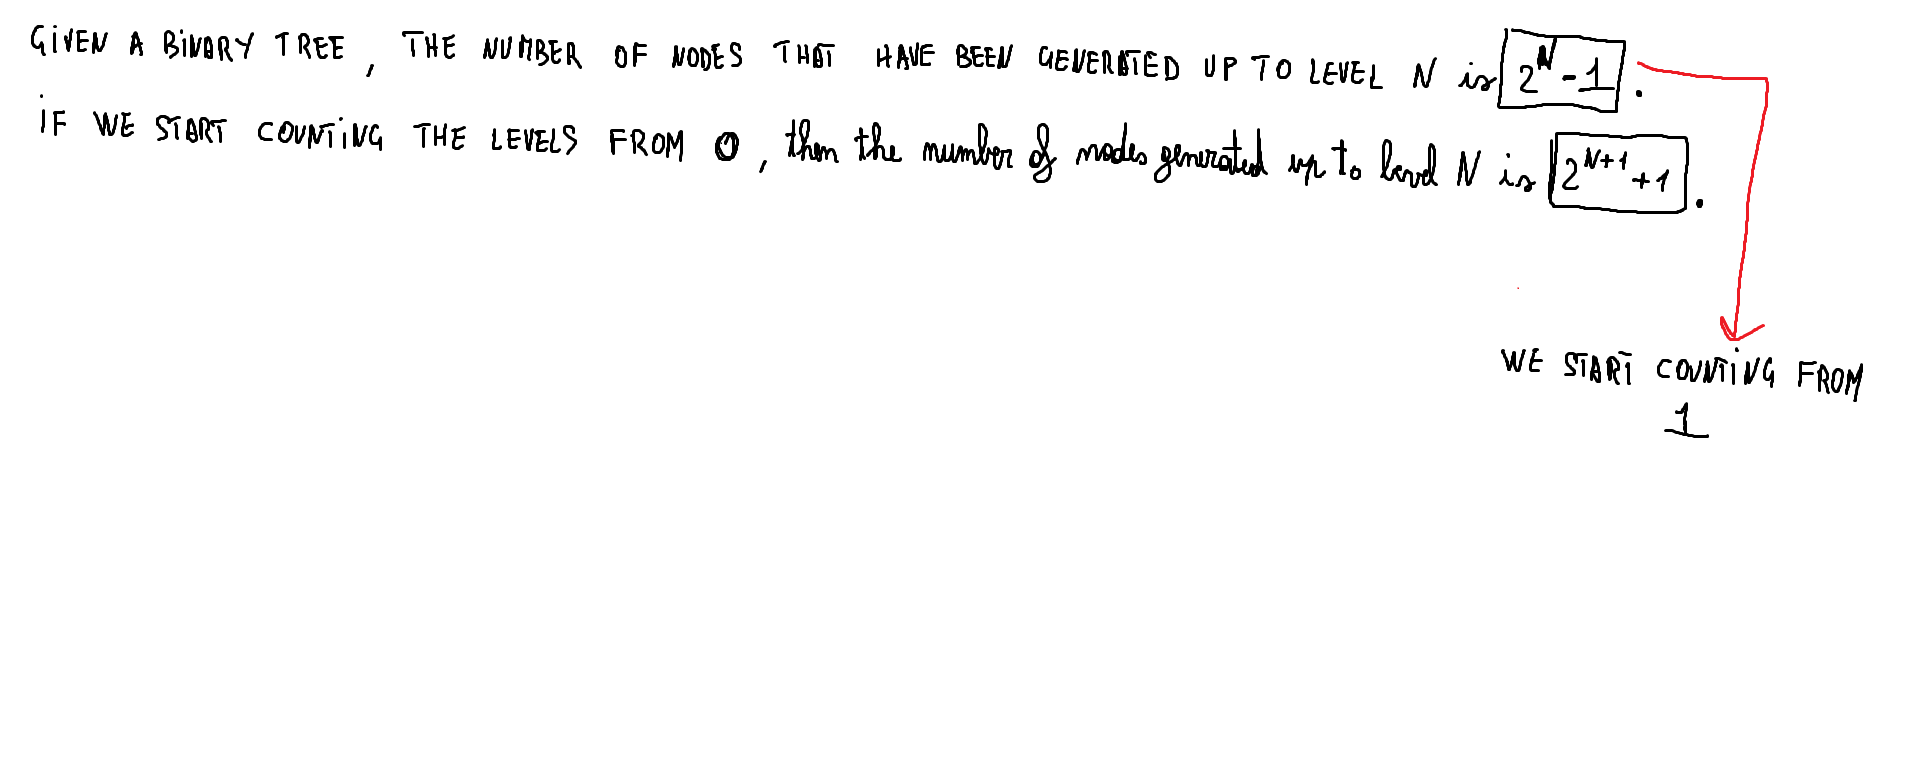 GIVEN A BINARY TREE, THE NUMBER OF NODES THAT HAVE BEEN GENERATED UP TO LEVEL N is 2^N - 1.
IF WE START COUNTING THE LEVELS FROM 0, then the number of nodes generated up to level N is 2^{N+1} + 1.
WE START COUNTING FROM
1